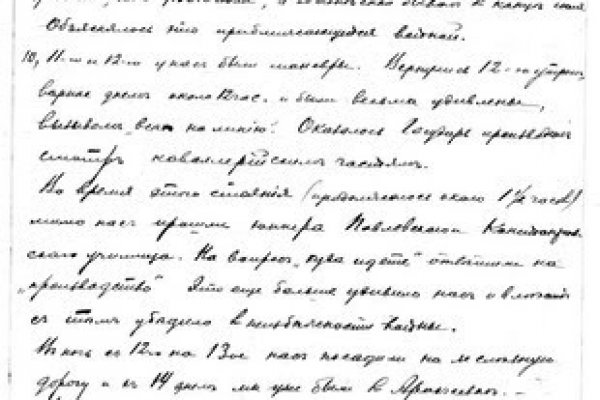 Объяснялось это приближающейся войной.
10, 11-го и 12-го у нас были маневры. Вернулись 12-го утром,
вернее днем около 12 час. и были весьма удивлены,
вызовом "всех на линию". Оказалось Государь производил
смотр кавалерийским частям.
Во время этого стояния (продолжалось около 1½ часов)
мимо нас прошли юнкера Павловского Константинов-
ского училища. На вопрос "куда идете" отвечали на
"производство". Это еще больше удивило нас и
с тем убедило в неизбежности войны.
В ночь с 12го на 13ое нас посадили на железную
дорогу и к 14 днем мы уже были в